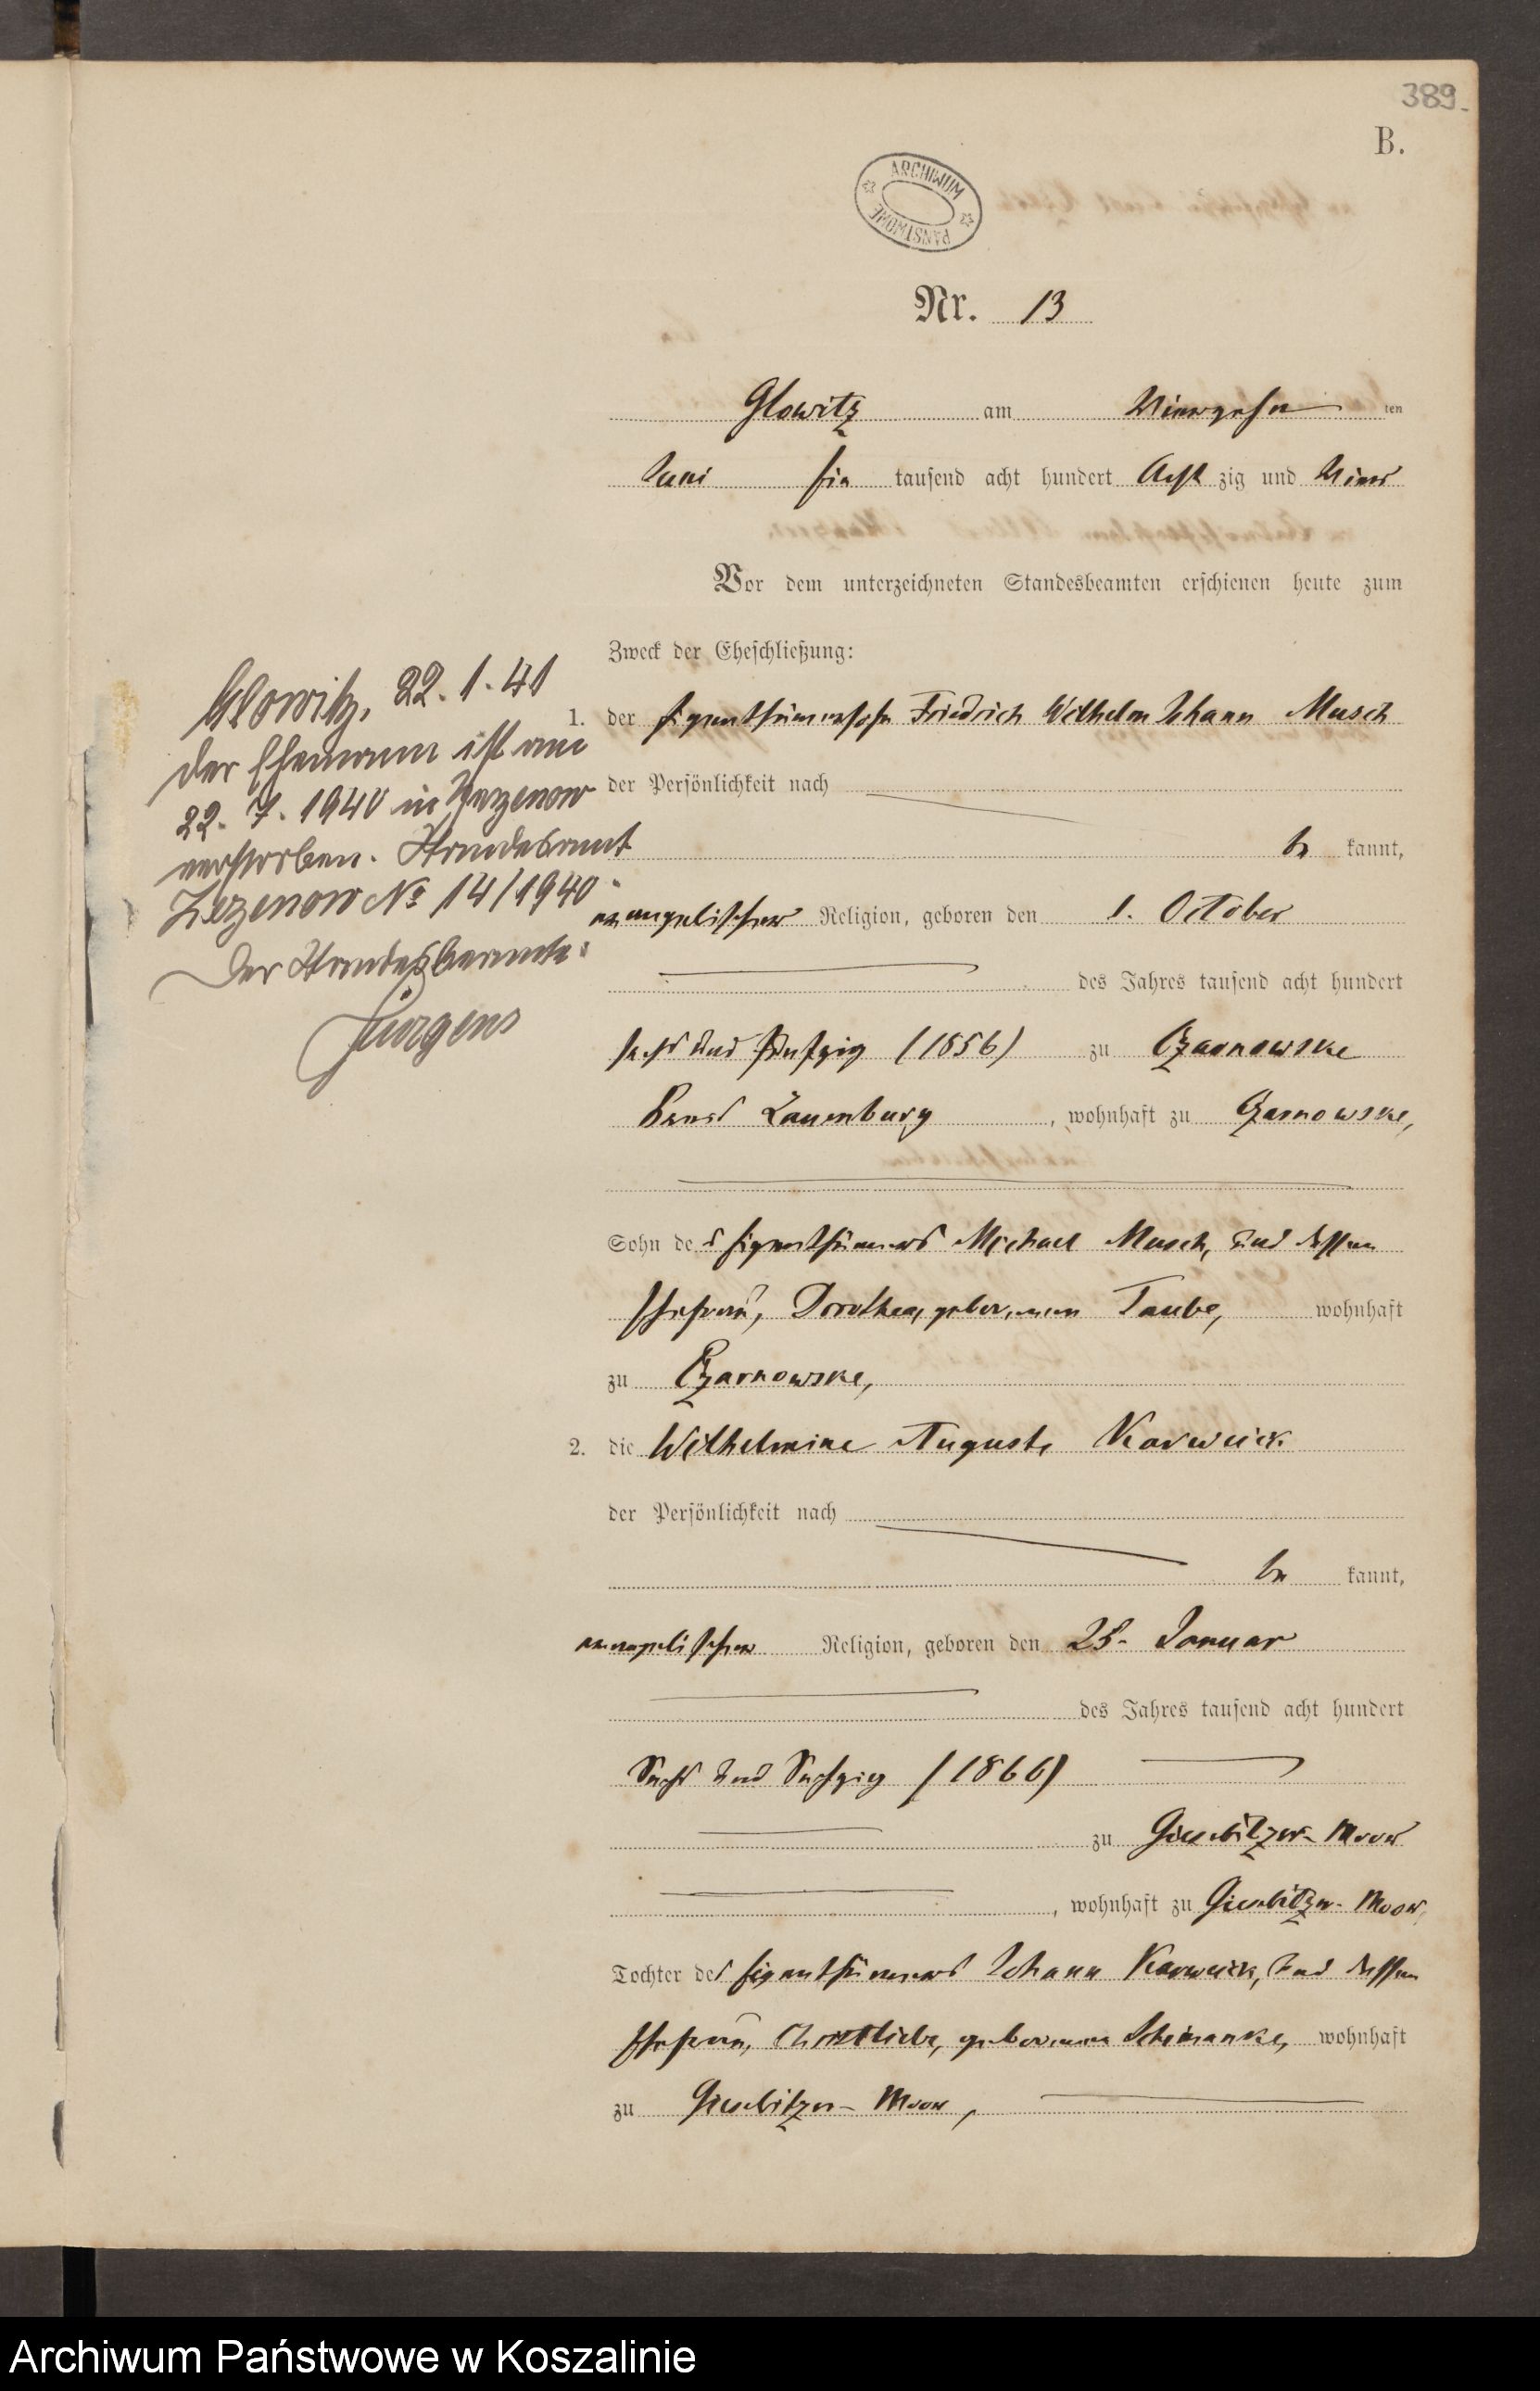 389.
B.
ARCHIWUM PAŃSTWOWE
Nr. 13
Glowitz am Vierzehn ten
Juni Ein tausend acht hundert Acht zig und Vier
Vor dem unterzeichneten Standesbeamten erschienen heute zum
Zweck der Eheschließung:
1. der Eigenthümersohn Friedrich Wilhelm Johann Musch
der Persönlichkeit nach
be kannt,
evangelischer Religion, geboren den 1. October
des Jahres tausend acht hundert
sechs und fünfzig (1856) zu Czarnowske
Kreis Lauenburg, wohnhaft zu Czarnowske,
Sohn des Eigenthümers Michael Musch, und dessen
Ehefrau, Dorothea, geborenen Taube, wohnhaft
zu Czarnowske,
2. die Wilhelmine Auguste Karweick
der Persönlichkeit nach
be kannt,
evangelischer Religion, geboren den 25. Januar
des Jahres tausend acht hundert
Sechs und Sechzig (1866)
zu Giesebitzer-Moor
, wohnhaft zu Giesebitzer-Moor,
Tochter des Eigenthümers Johann Karweick, und dessen
Ehefrau, Christliebe, geborenen Schimanke, wohnhaft
zu Giesebitzer-Moor,
Glowitz, 22.1.41
Der Ehemann ist am
22.7.1940 in Zezenow
verstorben. Standesamt
Zezenow No 14/1940.
Der Standesbeamte:
Jürgens
Archiwum Państwowe w Koszalinie